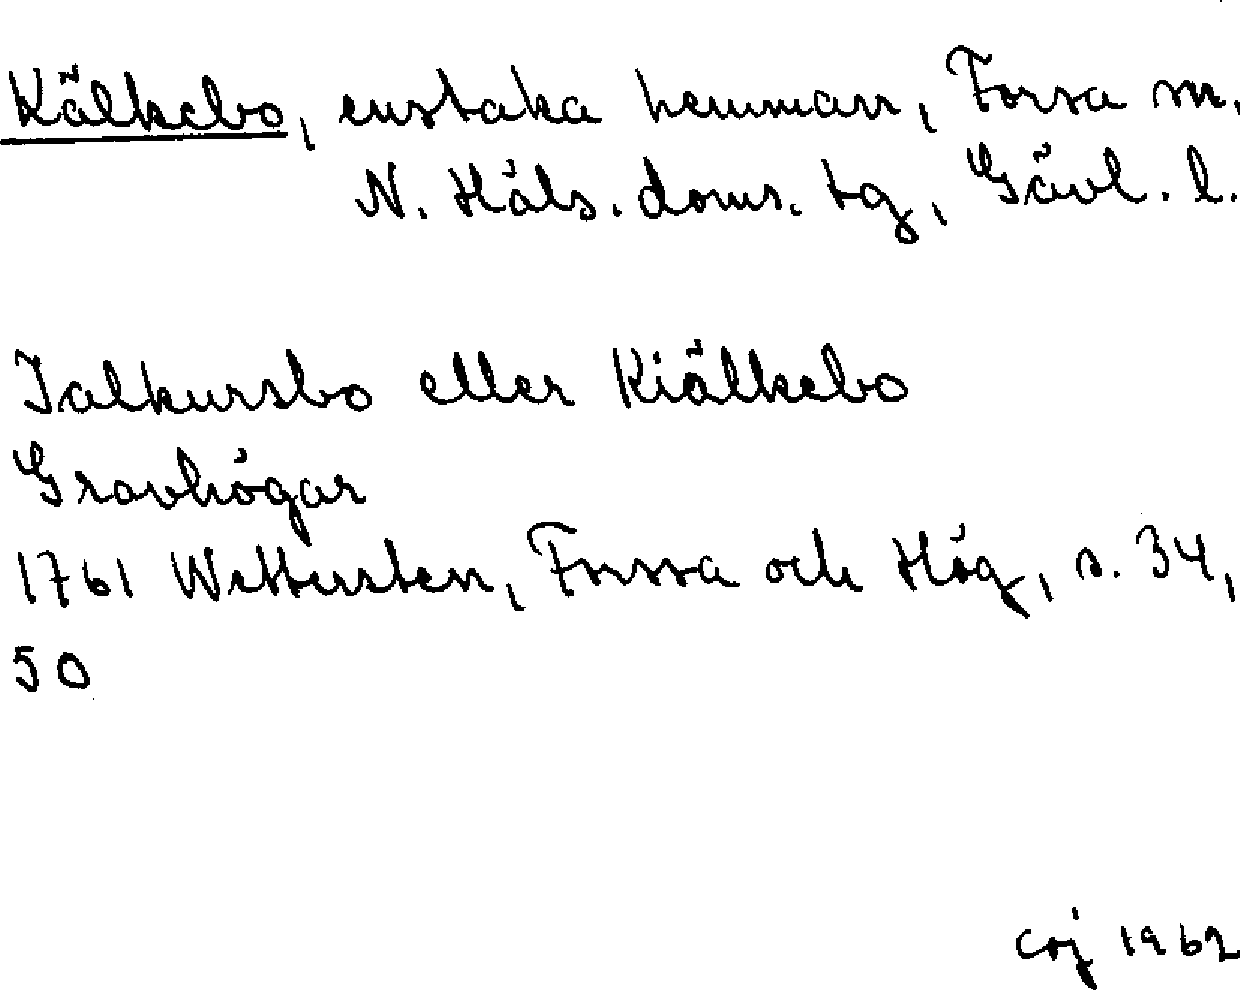 Kälkebo, enstaka hemman, Forsa sn,
N. Häls. doms. tg, Gävl. l.
Jalkursbo eller Kiälkebo
Gravhögar
1761 Wettersten, Forssa och Hög, s. 34,
50
coj 1962